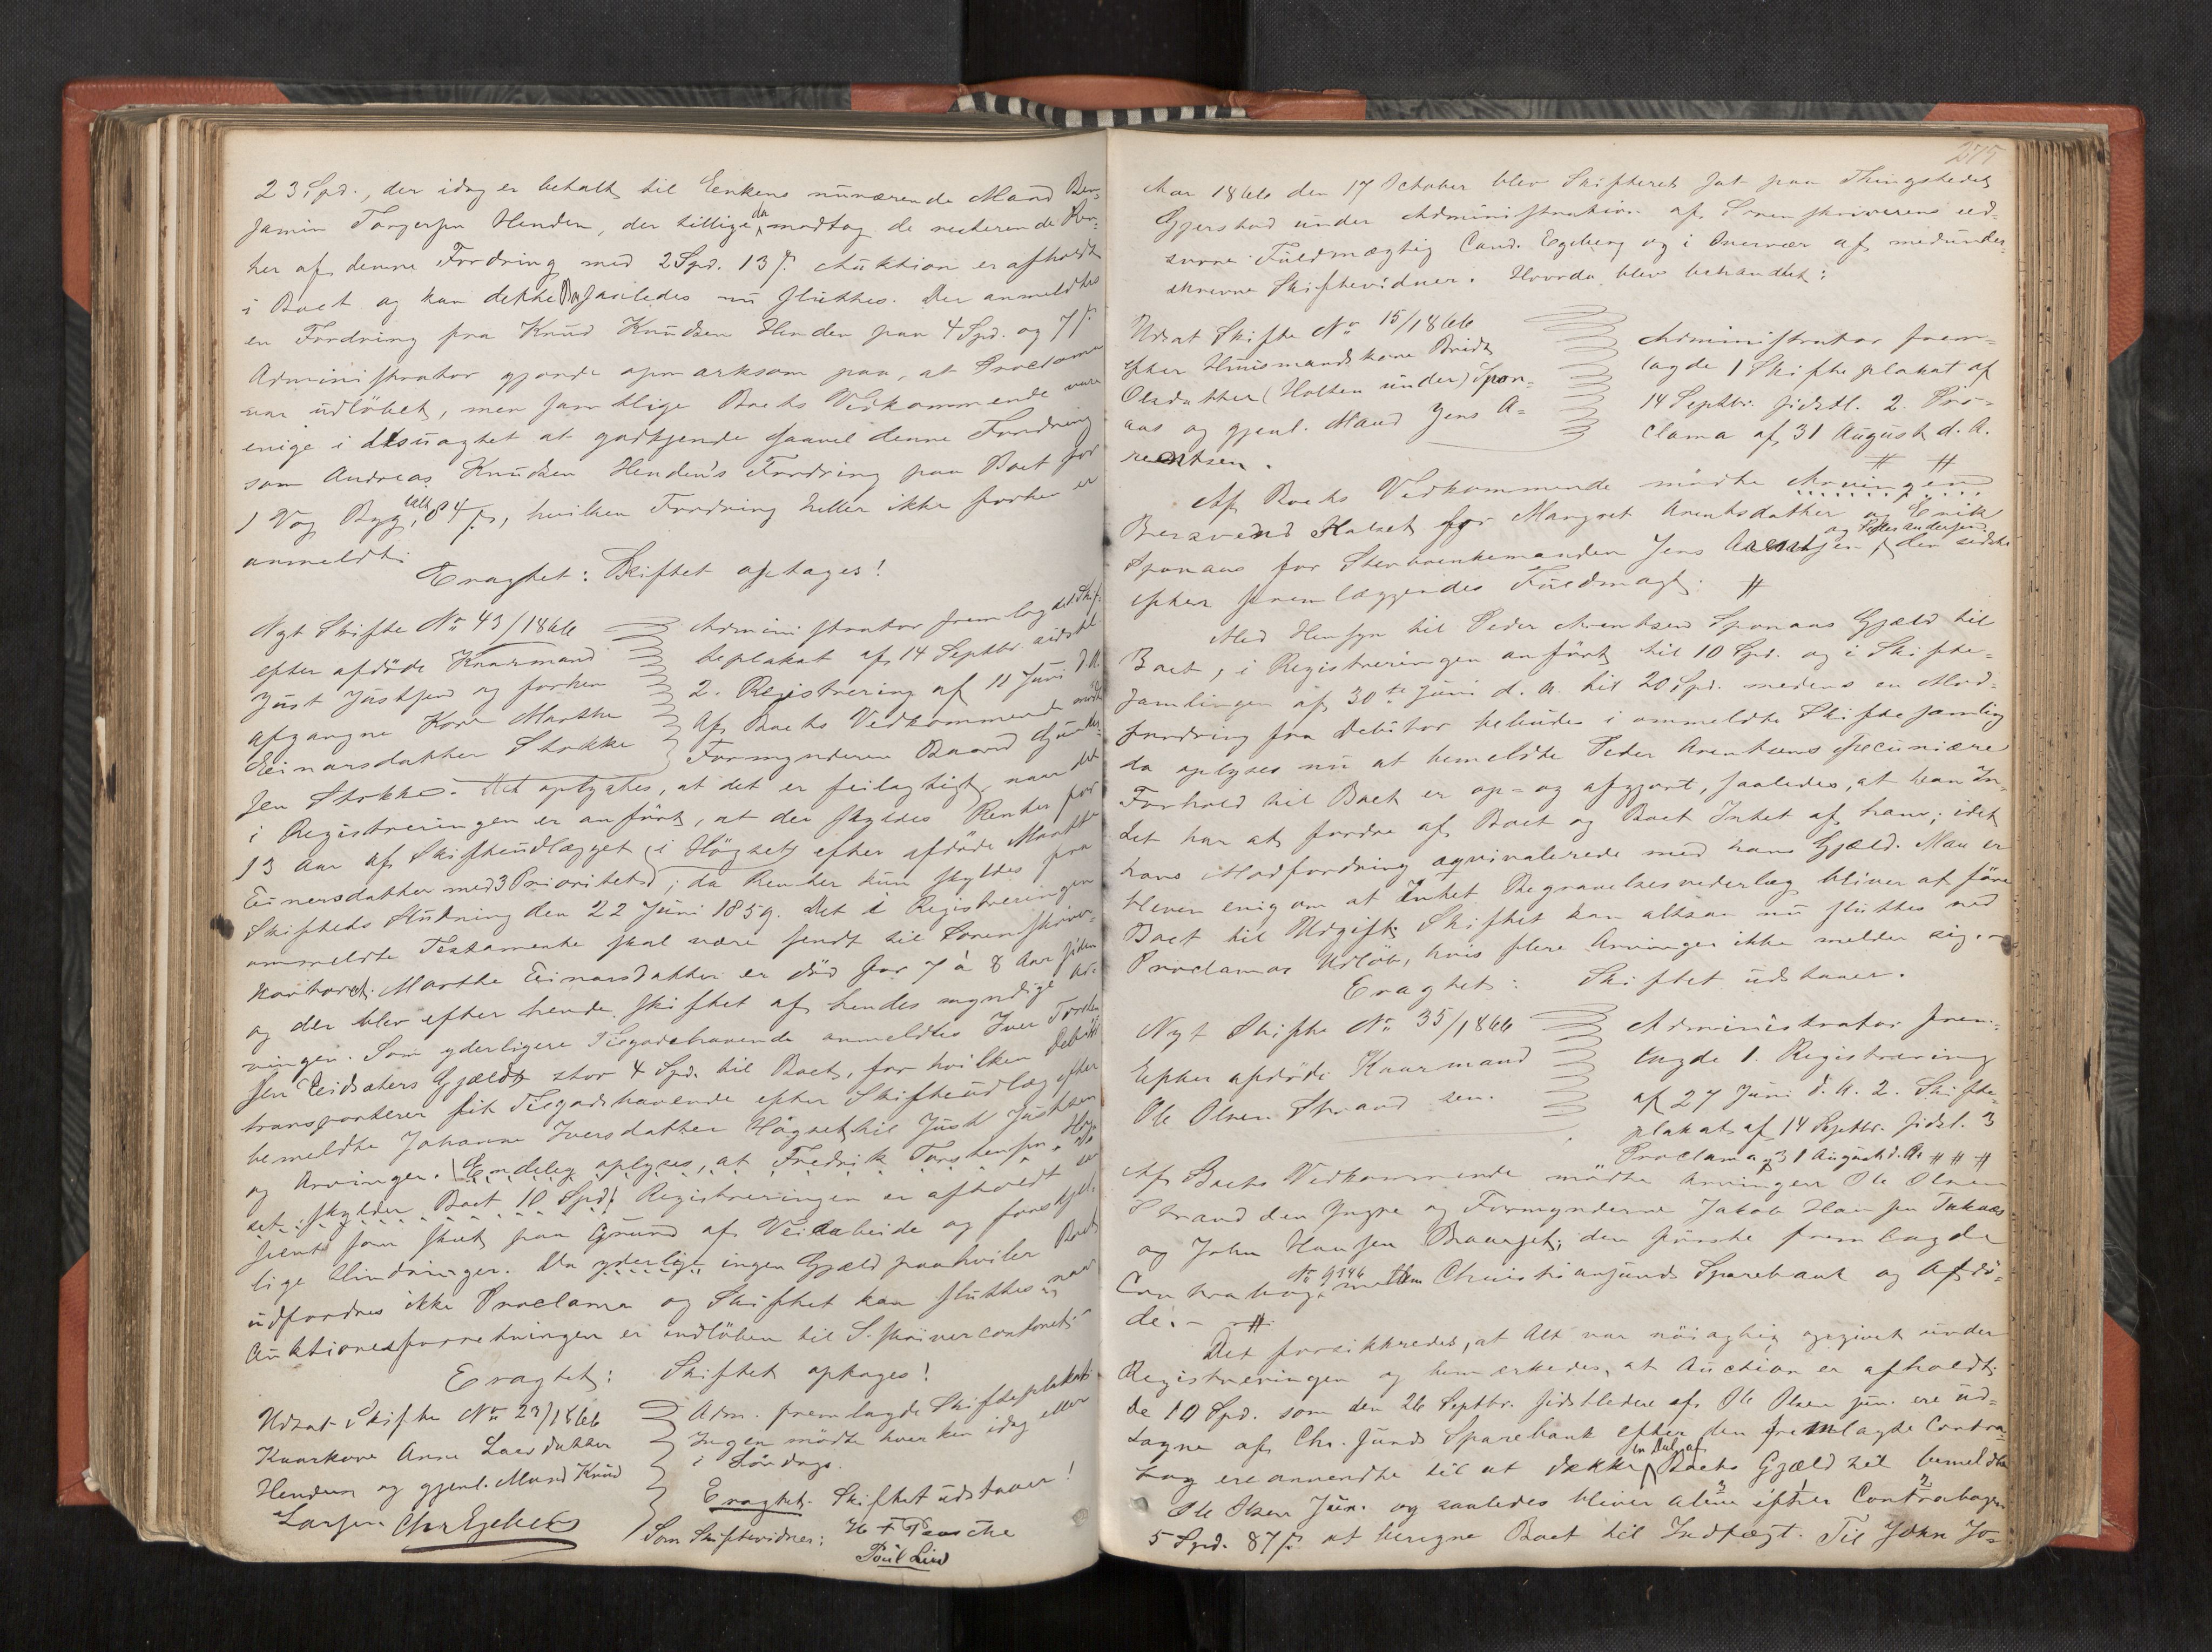 23 Spd., der idag er betalt til Enkens nuværende Mand Ben-
jamin Torgersen Henden, der tillige da modtog de resterende Ren-
ter af denne Fordring med 2 Spd. 13 ß. Auktion er afholdt
i Boet og kan dette Bo saaledes nu sluttes. Der anmeldtes
en Fordring fra Knud Knudsen Henden paa 4 Spd. og 7 ß
Administrator gjorde opmærksom paa, at Proclama
var udløbet, men samtlige Boets Vedkommende vare
enige i desuagtet at godkjende saavel denne Fordring
som Andreas Knudsen Hendens Fordring paa Boet for
1 Vog Byg, 84 ß, hvilken Fordring heller ikke forhen er
anmeldt.
Eragtet: Skiftet optages!
Nyt Skifte No 43/1866
efter afdøde Kaarmand
Just Justsen og forhen
afgangne Kone Marthe
Einarsdatter Stokke
Administrator fremlagde 1. Skif-
teplakat af 14 Septbr. sidstl.
2. Registrering af 11 Juni d. A.
Af Boets Vedkommende mødte
Formynderen Baard
sen Stokke. Det oplystes, at det er feilagtigt, naar det
i Registreringen er anført, at der skyldes Renter for
13 Aar af Skifteudlægget i Høgset efter afdøde Marthe
Einersdatter med 3 Prioritet, da Renter kun skyldes fra
Skiftets Slutning den 22 Juni 1859. Det i Registreringen
ommeldte Testamente skal være sendt til Sorenskriver-
kontoret. Marthe Einarsdatter er død for 7 à 8 Aar siden
og der blev efter hende skiftet af hendes myndige Ar-
vinger. Som yderligere Tilgodehavende anmeldtes Iver Torsten-
sen Eidsæters Gjæld stor 4 Spd. til Boet, for hvilken Debitor
transporterer sit Tilgodehavende efter Skifteudlæg efter
bemeldte Johanne Iversdatter Høgset til Just Justsen
og Arvinger. Endelig oplyses, at Fredrik Torstensen Høg-
set skylder Boet 10 Spd. Registreringen er afholdt saa
sent som skeet paa Grund af Veiarbeide og forskjel-
lige Hindringer. Da yderligt ingen Gjæld paahviler Boet
udfordres ikke Proclama og Skiftet kan sluttes naar
Auktionsforretningen er indløben til S.skrivercontoret.
Eragtet: Skiftet optages!
Udsat Skifte No 23/1866
Kaarkone Anne Larsdatter
Henden og gjenl. Mand Knud
Larsen
Adm. fremlagde Skifteplakat
Ingen mødte hverken idag eller
i Lørdags.
Eragtet. Skiftet udstaaer!
Som Skiftevidner:
Poul Lied
275
Aar 1866 den 17 October blev Skifteret sat paa Thingstedet
Gjerstad under Administration af Sorenskriverens ed-
svorne Fuldmægtig Cand. Egeberg og i Overvær af medunder-
skrevne Skiftevidner. Hvorda blev behandlet:
Udsat Skifte No 15/1866
efter Huusmandskone Bridt
Olsdatter (Holten under) Spor-
aas og gjenl. Mand Jens A-
rentsen.
Administrator frem-
lagde 1 Skifteplakat af
14 Septbr. sidstl. 2. Pro-
clama af 31 August d. A.
Af Boets Vedkommende mødte Arvingen
Halset for Margret Arentsdatter og Erik
Sporaas for Sterboenkemanden Jens Arentsen, den sidste
efter fremlæggendes Fuldmagt.
Med Hensyn til Peder Arentsen Sporaas Gjæld til
Boet, i Registreringen anført til 10 Spd. og i Skifte-
samlingen af 30te Juni d. A. til 20 Spd. medens en Mod-
fordring fra Debitor bebudes i ommeldte Skiftesamling
da oplyses nu at bemeldte Peder Arentsens pecuniære
Forhold til Boet er op- og afgjort, saaledes, at han In-
det har at fordre af Boet og Boet Intet af ham, idet
hans Modfordring æqvivalerede med hans Gjæld. Man er
bleven enig om at Intet Begravelsesvederlag bliver at føre
Boet til Udgift. Skiftet kan altsaa nu sluttes ved
Proclamas Udløb, hvis flere Arvinger ikke melder sig.
Eragtet: Skiftet udstaaer.
Nyt Skifte No 35/1866
Efter afdøde Kaarmand
Ole Olsen Strand sen.
Administrator frem-
lagde 1. Registrering
af 27 Juni d. A. 2. Skifte-
plakat af 14 Septbr. sidstl. 3
Proclama af 31 August d. A.
Af Boets Vedkommende mødte Arvingen Ole Olsen
Strand den Yngre og Formynderne Jakob Hansen
og John Hansen, den første fremlagde
Contrabog No 9146 mellem Christiansunds Sparebank og Afdø-
de.
Det forsikkredes, at Alt var nøiagtig opgivet under
Registreringen og bemærkedes, at Auction er afholdt.
De 10 Spd. som den 26 Septbr. sidstleden af Ole Olsen jun. ere ud-
tagne af Chr.sunds Sparebank efter den fremlagte Contra-
bog ere anvendte til at dække en Deel af Boets Gjæld til bemeldte
Ole Olsen Jun. og saaledes bliver alene efter Contrabogen
5 Spd. 87 ß at beregne Boet til Indtægt. Til John Jo-